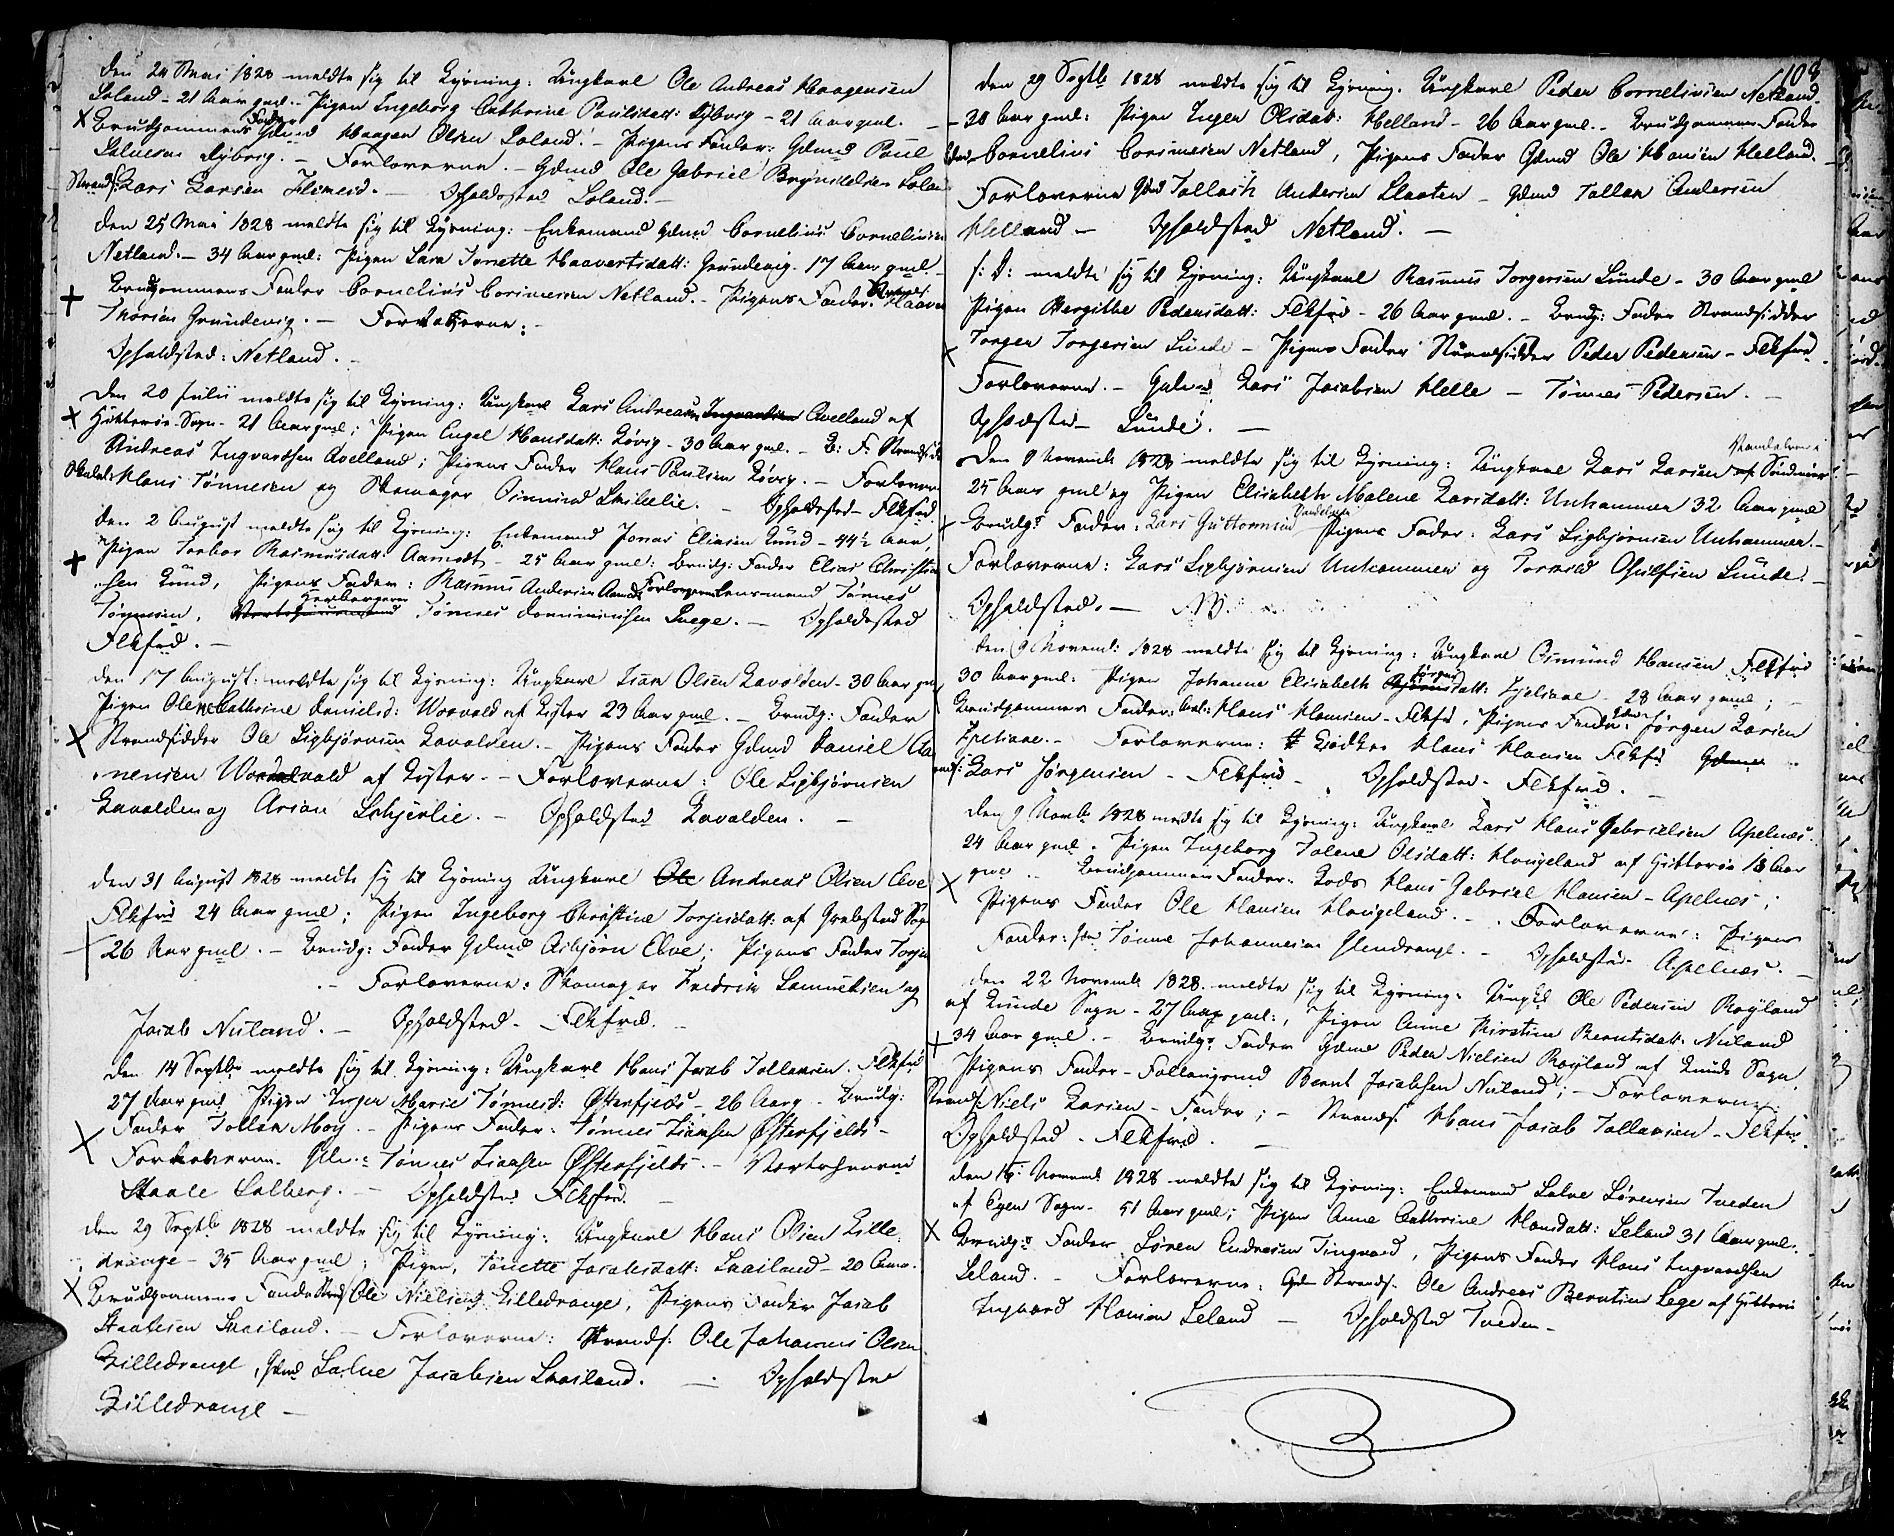 Den 24 Mai 1828 meldte sig til Lysning: Ungkarl Ole Andreas Haagensen
Loland - 21 Aar gml. - Pigen Ingeborg Cathrine Paulsdatt: Dybvig - 21 Aar gml. -
Brudgommens Fader Gdmd Haagen Olsen Loland. - Pigens Fader: Gdmd Paul
Dybvig. - Forloverne. - Gdmd Ole Gabriel Brynildsen Loland
Strands: Lars Larsen - Opholdsted Loland. -
Den 25 Mai 1828 meldte sig til Lysning: Enkemand Gdmd Cornelius Cornelius
Netland. - 34 Aar gml: Pigen Sara Tonette Haavertsdatt: Grundevig - 17 Aar gml. -
Brudgommens Fader Cornelius Netland. - Pigens Fader: Strands: Haaver
Thorsen Grundevig. - Forloverne: -
Opholdsted: Netland. -
Den 20 Julii meldte sig til Lysning: Ungkarl Lars Andreas Ingvardsen Avelland af
Hitterøe Sogn - 21 Aar gml; Pigen Engel Hansdatt: Løvig - 30 Aar gml. - B: F: Strands
Andreas Ingvardsen Avelland; Pigens Fader Hans Poulsen Løvig. - Forlovere
Hans Tønnesen og Skomager - Opholdsted - Flekfrd.
Den 2 August meldte sig til Lysning: Enkemand Jonas Eliasen Lund - 44½ Aar,
Pigen Torbor Rasmusdatt: Aamodt - 25 Aar gml: Brudg: Fader Elias Christian
sen Lund, Pigens Fader: Rasmus Andersen Aamodt Forloverne Lensmand Tønnes
Tønnesen, Tønnes - Opholdsted
Flekfrd. -
Den 17 August: meldte sig til Lysning: Ungkarl Isak Olsen Lavolden - 30 Aar gml
Pigen Olene Cathrine Danielsd: Worvold af Lister 23 Aar gml. - Brudg: Fader
Strandsidder Ole Sigbjørnsen Lavolden. - Pigens Fader Gdmd Daniel Aa
nensen Worvold af Lister. - Forloverne: Ole Sigbjørnsen
Lavolden og Arian - Opholdsted Lavolden. -
Den 31 August 1828 meldte sig til Lysning Ungkarl Ole Andreas Olsen Elve
Flekfrd 24 Aar gml; Pigen Ingeborg Christine Torjusdatt: af Grebstad Sogn
26 Aar gml. - Brudg: Fader Gdmd Asbjørn Elve; Pigens Fader Torju
- Forloverne: Skomager Fredrik Samuelsen og
Jacob Nuland. - Opholdsted - Flekfrd. -
Den 14 Septbr meldte sig til Lysning: Ungkarl Hans Jacob Tollaksen. Flekfrd
27 Aar gml Pigen Inger Marie Tønnesd: Østerfjelds - 26 Aar g - Brudg:
Fader Tollak Moy. - Pigens Fader: Tønnes Isaksen Østerfjelds -
Forloverne. Tønnes Isaksen Østerfjelds. -
Staale Solberg. - Opholdsted Flekfrd. -
Den 29 Septb 1828 meldte sig til Lysning: Ungkarl Hans Olsen Lille
drange - 35 Aar gml; Pigen, Tonette Jacobsdatt: Skailand - 20 Aar.
Brudgommens Fader Strands Ole Nielsen Lilledrange, Pigens Fader Jacob
Staalesen Skailand. - Forloverne: Strands: Ole Johannes Olsen
Lilledrange, Gdmd Salve Jacobsen Skailand. - Opholdsted
Lilledrange -
108
Den 29 Septb 1828 meldte sig til Lysning. Ungkarl Peder Corneliusen Netland.
- 30 Aar gml: Pigen Inger Olsdat: Helland - 26 Aar gml. - Brudgommens Fader
Cornelius Netland, Pigens Fader Gdmd Ole Hansen Helland.
Forloverne Gdmd Tollach Andersen Slaaten - Gdmd Tollak Andersen
Helland - Opholdsted Netland. -
S: D: meldte sig til Lysning: Ungkarl Rasmus Torgersen Lunde - 30 Aar gml
Pigen Bergithe Pedersdatt: Flekfrd - 26 Aar gml. - Brudg: Fader Strandsidder
Torger Torgersen Lunde - Pigens Fader Strandsidder Peder Pedersen - Flekfrd.
Forloverne. - Gdmd Lars Jacobsen Helle - Tønnes Pedersen. -
Opholdsted Lunde. -
Den 9 Novemb 1828 meldte sig til Lysning: Ungkarl Lars Larsen af
25 Aar gml og Pigen Elisabeth Malene Larsdatt: Unhammer 32 Aar gml
Brudgs Fader: Lars Guttormsen Pigens Fader: Lars Sigbjørnsen Unhammer. -
Forloverne: Lars Sigbjørnsen Unhammer og Lunde. -
Opholdsted. - NB.
Den 9 Novemb: 1828 meldte sig til Lysning: Ungkarl Osmund Hansen Flekfrd
30 Aar gml: Pigen Johanne Elisabeth Jørgensdatt: - 28 Aar gml; -
Brudgommens Fader: Hans Hansen - Flekfrd, Pigens Fader: Jørgen Larsen
Forloverne: Hans Hansen Flekfrd
Lars Jørgensen - Flekfrd - Opholdsted - Flekfrd. -
Den 9 Novb 1828 meldte sig til Lysning: Ungkarl Lars Hans Gabrielsen Apelnæs.
24 Aar gml. Pigen Ingeborg Tolene Olsdatt: Haugeland af Hitterøe 18 Aar
gml. - Brudgommens Fader: Lods Hans Gabriel Hansen - Apelnæs;
Pigens Fader Ole Hansen Haugeland. - Forloverne: Pigens
Fader: for Tønne Johannesen Glendrange. - Opholdsted - Apelnæs. -
Den 22 Novemb 1828. meldte sig til Lysning: Ungkl Ole Pedersen Røyland
af Lunde Sogn - 27 Aar gml:, Pigen Anne Kirstine Berntsdatt: Nuland
34 Aar gml. - Brudgs Fader Gdmd Peder Nielsen Røyland af Lunde Sogn,
Pigens Fader - Bernt Jacobsen Nuland; - Forloverne:
Strands Niels Larsen - Fader; - Strands: Hans Jacob Tollaksen - Flekfrd.
Opholdsted - Flekfrd. -
Den 16: Novemb 1828 meldte sig til Lysning: Enkemand Salve Sørensen Tveden
af Egen Sogn - 51 Aar gml; Pigen Anne Cathrine Hansdatt: Leland 31 Aar gml.
Brudgs Fader Søren Endresen Tingvard, Pigens Fader Hans Ingvardsen
Leland. - Forloverne: Strands: Ole Andreas Berntsen Lege af Hitterø
Ingvard Hansen Leland - Opholdsted Tveden -